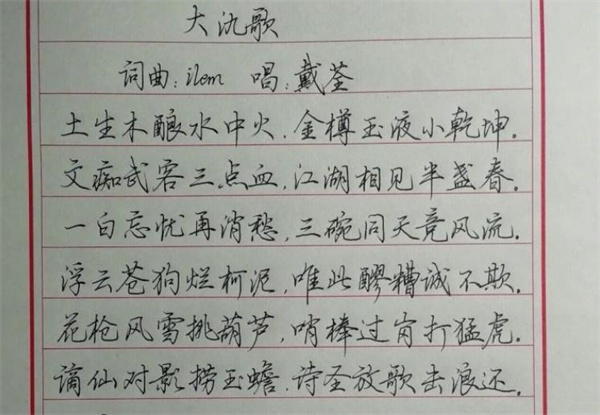 大氿歌
词曲:ilem 唱:戴荃
土生木酿水中火.金樽玉液小乾坤.
文痴武客三点血,江湖相见半盏春.
一白忘忧再消愁,三碗同天竞风流.
浮云苍狗烂柯泥,唯此醪糟诚不欺.
花枪风雪挑葫芦,哨棒过岗打猛虎.
谪仙对影捞玉蟾.诗圣放歌击浪还.